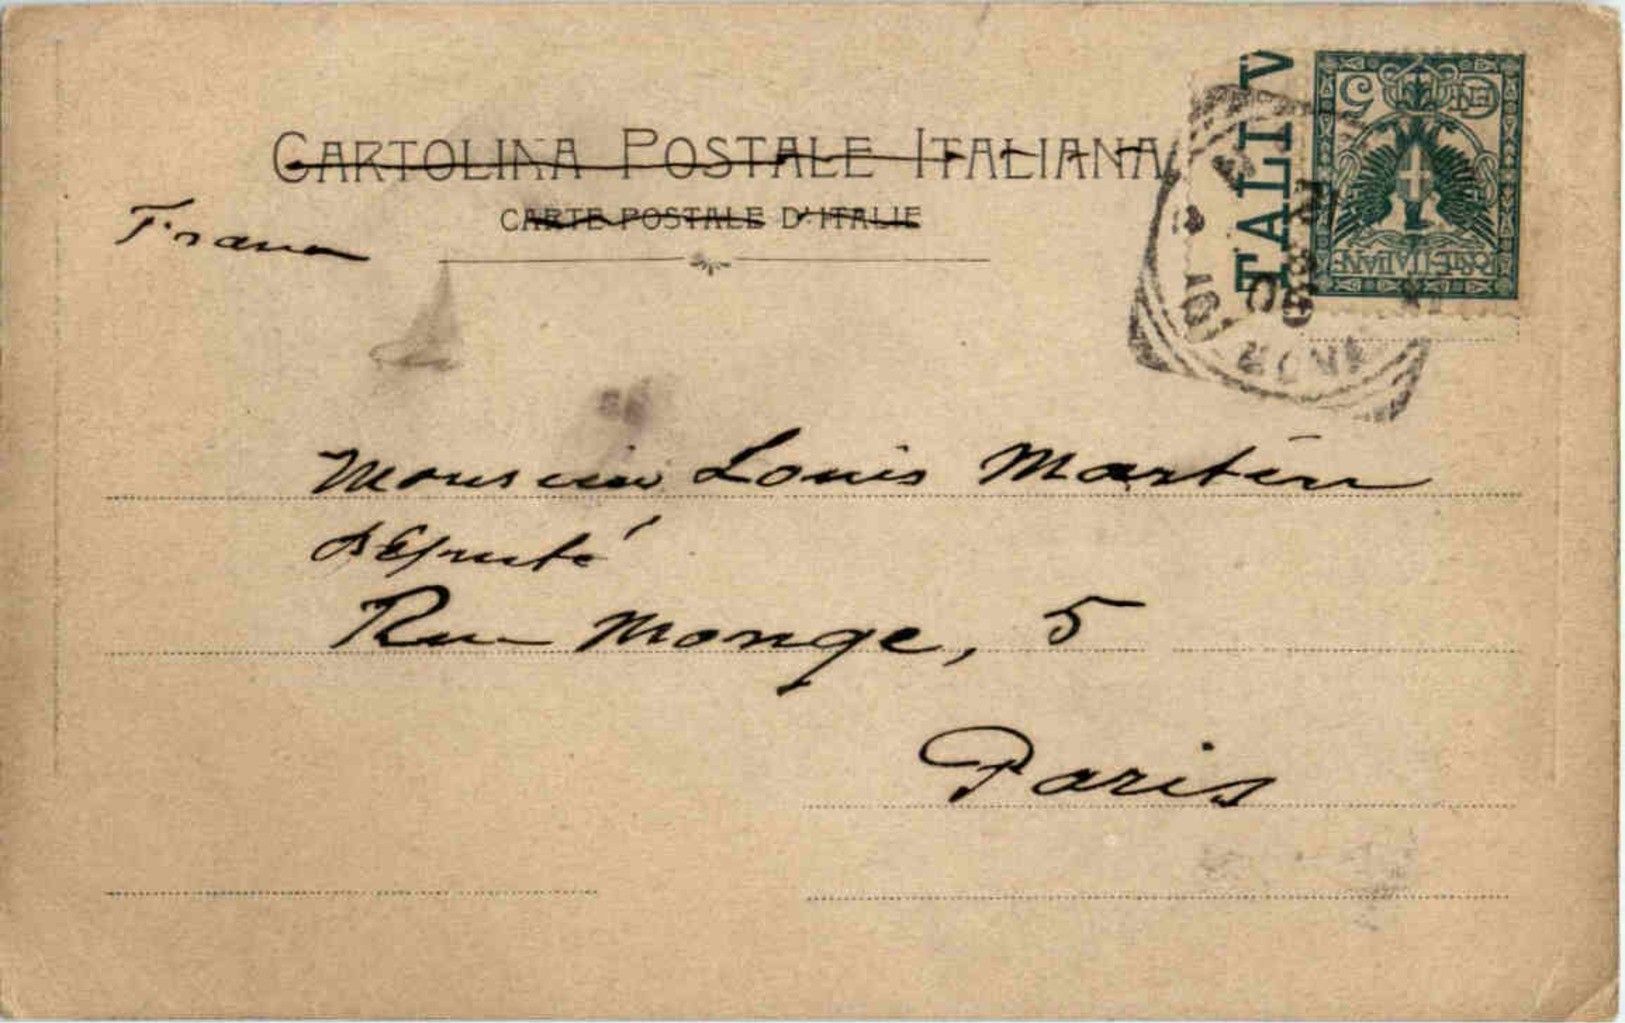 CARTOLINA POSTALE ITALIANA
CARTE POSTALE D'ITALIE
TALI
CENT 5
POSTE ITALIANE
Monsieur Louis Martin
député
Rue Monge, 5
Paris